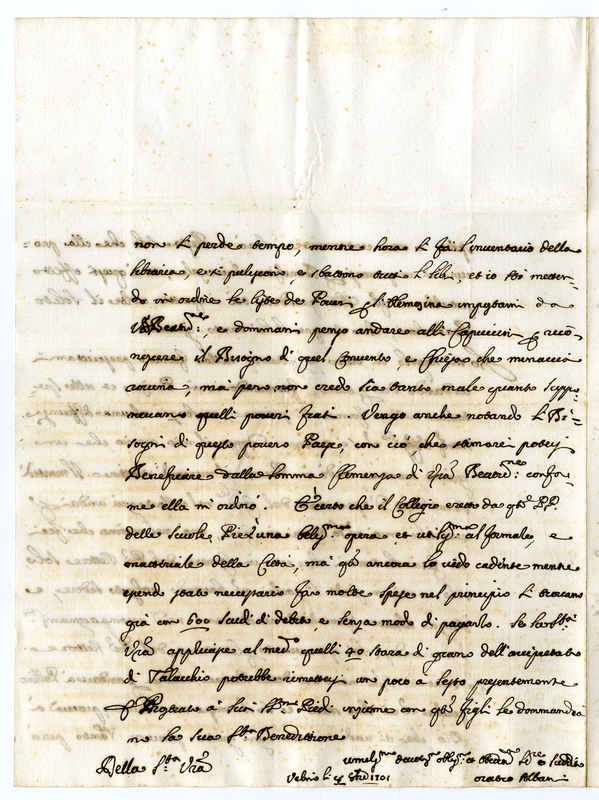 non si perde tempo, mentre hora si fà l'inventario della
libraria, e si puliscono, e sbattono tutti li libri, et io stò metten-
do in ordine le liste de Poveri p l'elemosina impostami da
Vrã Beatne:, e dommani penso andare alli Capuccini p rico-
noscere il Bisogno di quel Convento, e Chiesa che menaccia
rovina, mà però non credo sia tanto male quanto suppo-
nevano quelli poveri frati. Vengo anche notando li Bi-
sogni di questo povero Paese, con ciò, che stimerei potessi
Beneficiare dalla somma Clemenza di Vrã Beatne: confor-
me ella m'ordinò. È certo che il Collegio eretto da qti PP.
delle Scuole Pie è una bellma opera et utilma: al formale, e
materiale della Città, mà qti ancora lo vedo cadente mentre
essendo stato necessario far molte spese nel principio si trovano
già con 600 scudi di debito, e senza modo di pagarlo. Se la Stà
Vrã applicasse al medo quelli 40 stara di grano dell'arcipretato
di Talacchio potrebbe rimettersi un poco a sesto presentemente
e Prostrato à suoi Smi Piedi insieme con qti figli le dommandia
mo la sua Sta Benedittione
Della Sta Vrã
Urbino li 4 1701
umilmo devotmo oblmo servre e suddito
Oratio Albani